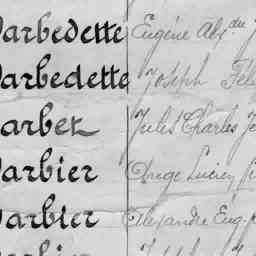 Barbedette Eugène Alf. du
Barbedette Joseph Fél
Barbet Jules Charles Je
Barbier Lucien
Barbier Alexandre Eug.